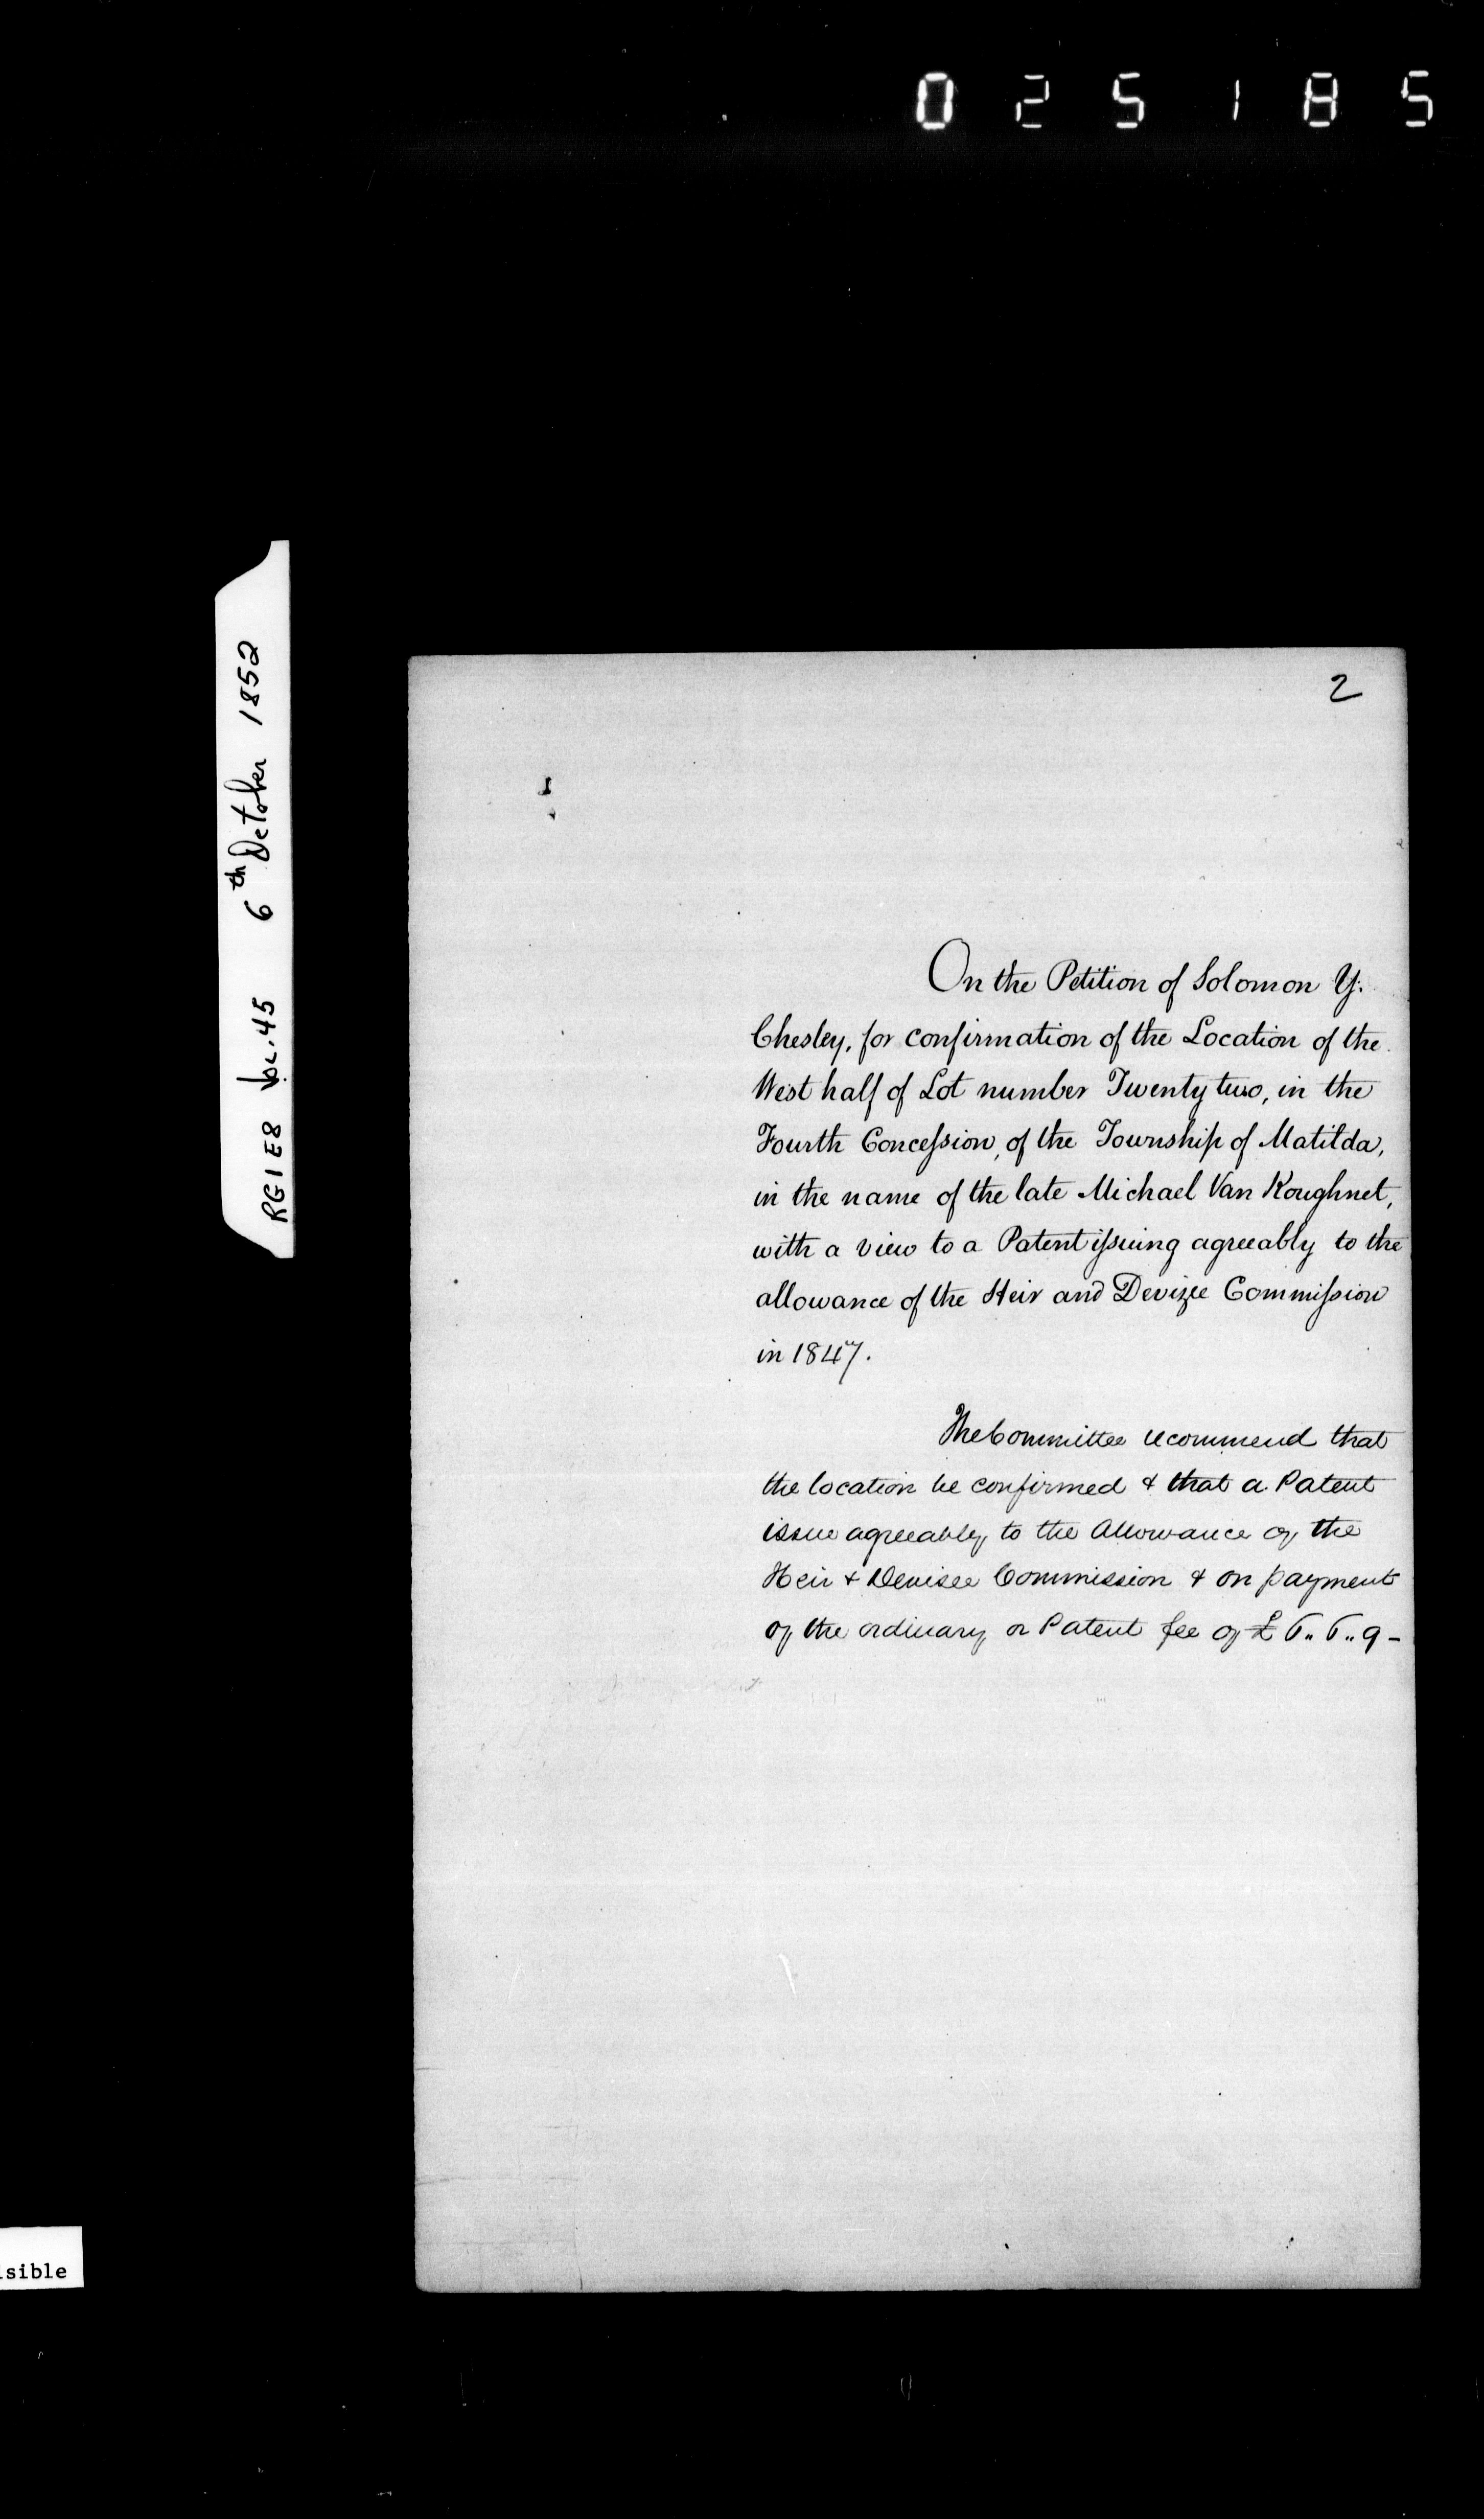 025185
RG1E8 Vol.45 6th October 1852
2
On the Petition of Solomon Y.
Chesley, for confirmation of the Location of the
West half of Lot number Twenty two, in the
Fourth Concession, of the Township of Matilda,
in the name of the late Michael Van Koughnet,
with a view to a Patent issuing agreeably to the
allowance of the Heir and Devizee Commission
in 1847.
The Committee recommend that
the location be confirmed & that a Patent
issue agreeably to the Allowance of the
Heir & Devisee Commission & on payment
of the ordinary or Patent fee of £ 6.. 6.. 9 -
sible